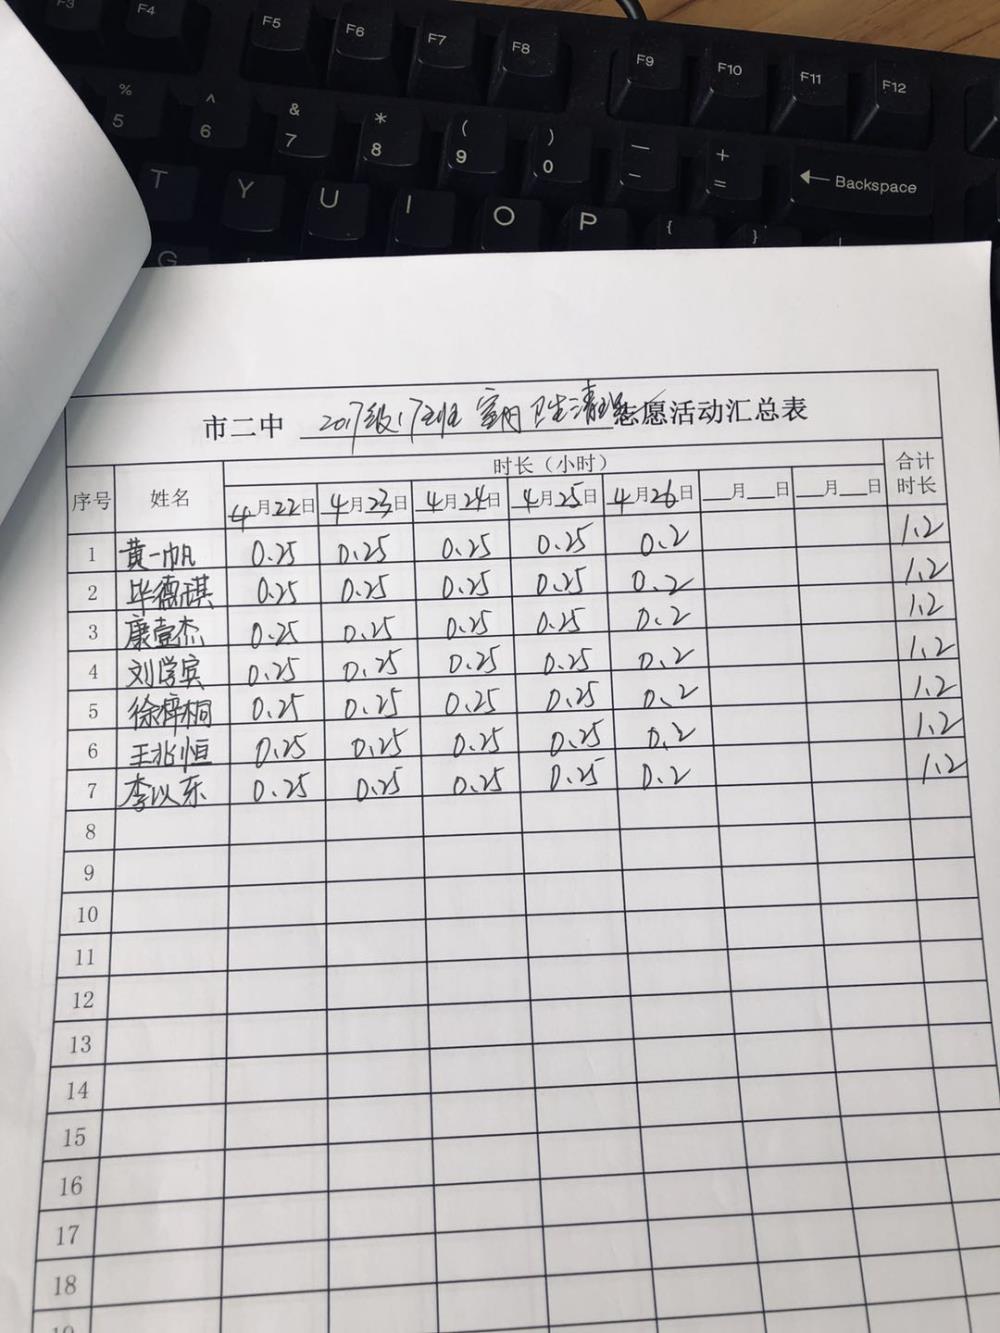 F3 F4 F5 F6 F7 F8 F9 F10 F11 F12
% 5 ^ 6 & 7 * 8 ( 9 ) 0 — - + = ← Backspace
T Y U I O P { }
G
市二中 2017级17班 室内卫生清理志愿活动汇总表
序号 姓名 时长（小时） 合计时长
4月22日 4月23日 4月24日 4月25日 4月26日 __月__日 __月__日
1 黄一帆 0.25 0.25 0.25 0.25 0.2 1.2
2 毕德琪 0.25 0.25 0.25 0.25 0.2 1.2
3 康壹杰 0.25 0.25 0.25 0.25 0.2 1.2
4 刘学宾 0.25 0.25 0.25 0.25 0.2 1.2
5 徐梓桐 0.25 0.25 0.25 0.25 0.2 1.2
6 王兆恒 0.25 0.25 0.25 0.25 0.2 1.2
7 李以东 0.25 0.25 0.25 0.25 0.2 1.2
8
9
10
11
12
13
14
15
16
17
18